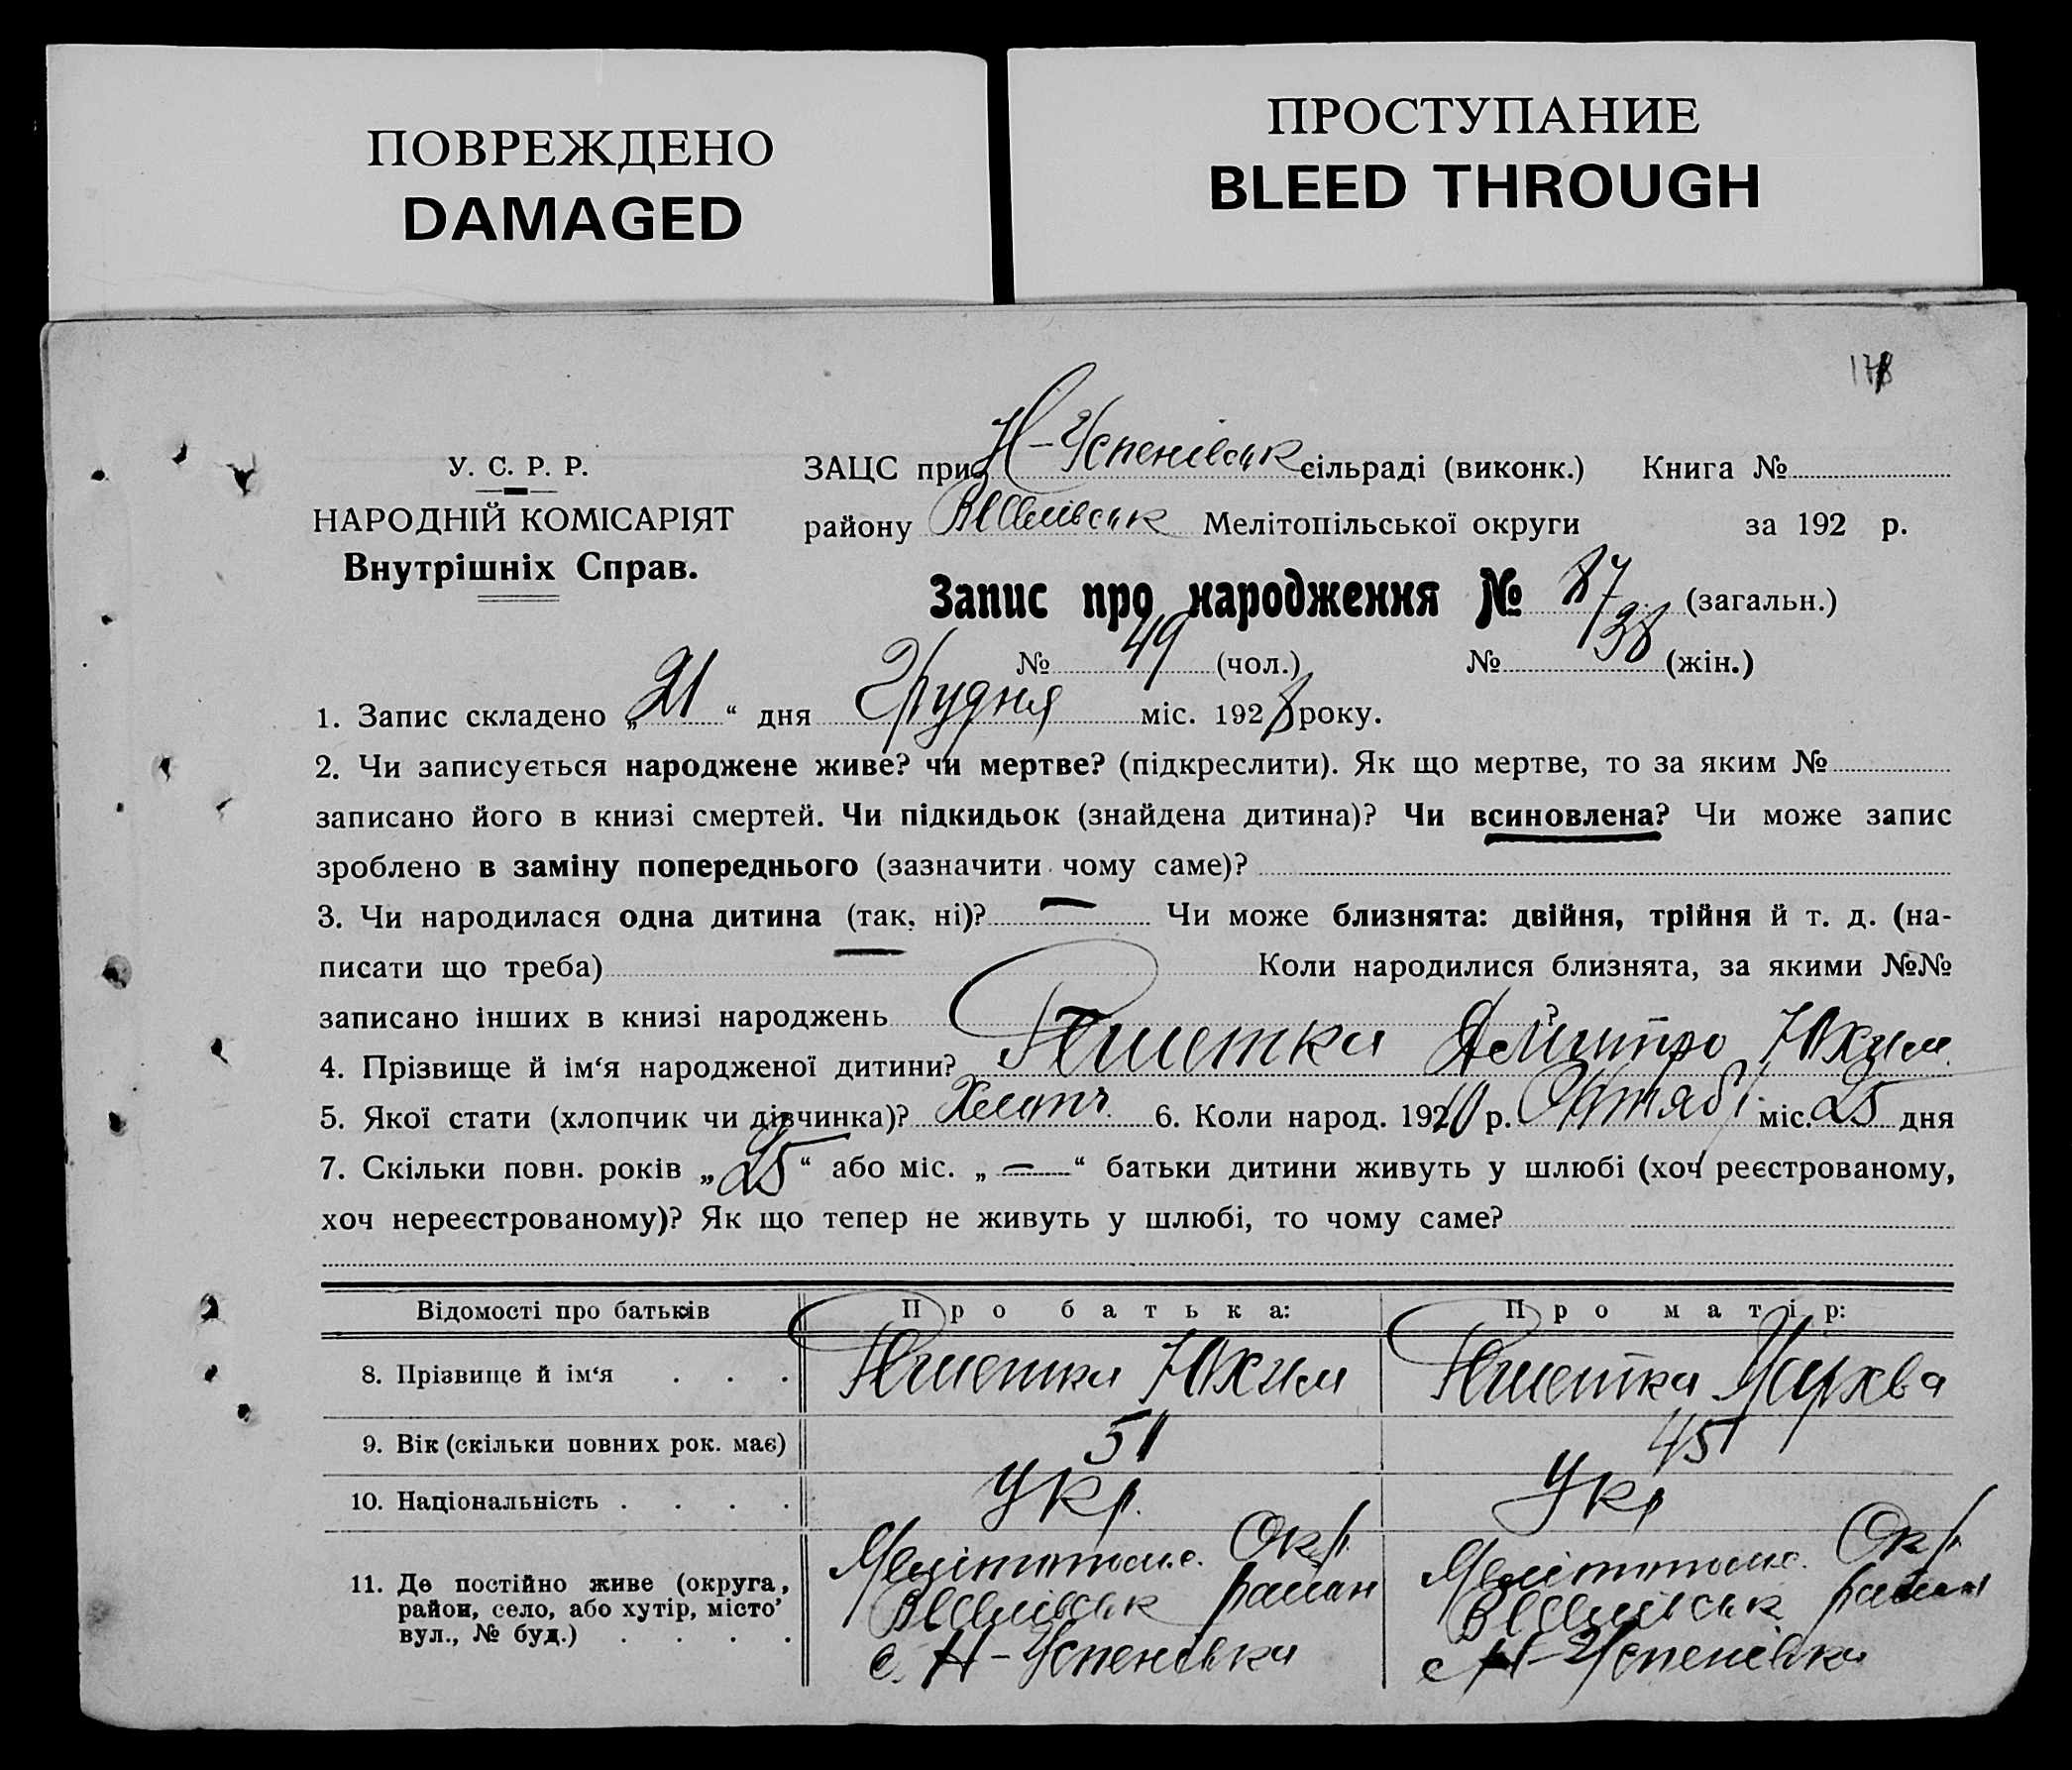 ПОВРЕЖДЕНО
DAMAGED
ПРОСТУПАНИЕ
BLEED THROUGH
У. С. Р. Р.
НАРОДНІЙ КОМІСАРІЯТ
Внутрішніх Справ.
ЗАЦС при Н-Успенівськ сільраді (виконк.) Книга №
району Мелітопільської округи за 192 р.
Запис про народження № 87 (загальн.)
№ 49 (чол.) № 38 (жін.)
1. Запис складено „21“ дня Грудня міс. 1928 року.
2. Чи записується народжене живе? чи мертве? (підкреслити). Як що мертве, то за яким №
записано його в книзі смертей. Чи підкидьок (знайдена дитина)? Чи всиновлена? Чи може запис
зроблено в заміну попереднього (зазначити чому саме)?
3. Чи народилася одна дитина (так, ні)? — Чи може близнята: двійня, трійня й т. д. (на-
писати що треба) Коли народилися близнята, за якими №№
записано інших в книзі народжень ?
4. Прізвище й ім‘я народженої дитини? Дмитро Юхим
5. Якої стати (хлопчик чи дівчинка)? Хлопч. 6. Коли народ. 192 р. Октяб. міс. 25 дня
7. Скільки повн. років „25“ або міс. „—“ батьки дитини живуть у шлюбі (хоч реєстрованому,
хоч нереєстрованому)? Як що тепер не живуть у шлюбі, то чому саме?
Відомості про батьків Про батька: Про матір:
8. Прізвище й ім‘я . . . Юхим Мархва
9. Вік (скільки повних рок. має) 51 45
10. Національність . . . . Укр. Укр
11. Де постійно живе (округа, район, село, або хутір, місто, вул., № буд.) . . . .
Мелітополс. Окр.
район
с. Н-Успенівка
Мелітополс. Окр.
район
с Н-Успенівка